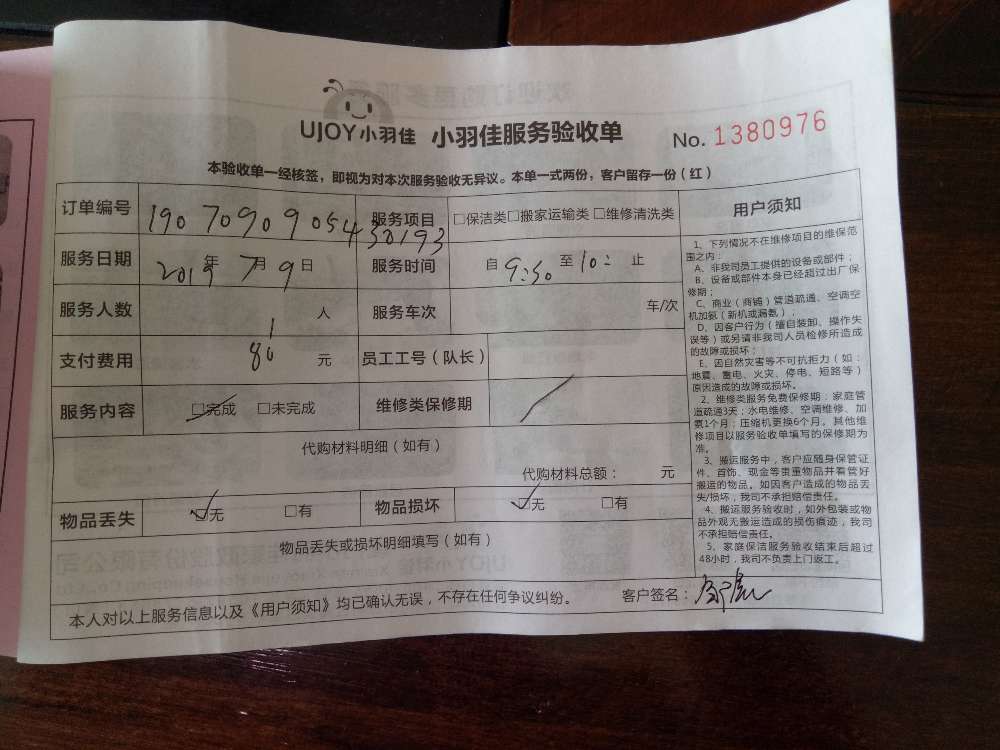 UJOY小羽佳 小羽佳服务验收单 No. 1380976
本验收单一经核签，即视为对本次服务验收无异议。本单一式两份，客户留存一份（红）
订单编号 19070909054330193 服务项目 □保洁类□搬家运输类□维修清洗类
服务日期 2019年7月9日 服务时间 自9:50至10: 止
服务人数 1 人 服务车次 车/次
支付费用 80 元 员工工号（队长）
服务内容 □完成 □未完成 维修类保修期
代购材料明细（如有）
代购材料总额： 元
物品丢失 □无 □有 物品损坏 □无 □有
物品丢失或损坏明细填写（如有）
本人对以上服务信息以及《用户须知》均已确认无误，不存在任何争议纠纷。 客户签名：
用户须知
1、下列情况不在维修项目的维保范
围之内：
A、非我司员工提供的设备或部件；
B、设备或部件本身已经超过出厂保
修期；
C、商业（商铺）管道疏通、空调空
机加氨（新机或漏氨）；
D、因客户行为（擅自装卸、操作失
误等）或另请非我司人员检修所造成
的故障或损坏；
E、因自然灾害等不可抗拒力（如：
地震、雷电、火灾、停电、短路等）
原因造成的故障或损坏。
2、维修类服务免费保修期：家庭管
道疏通3天；水电维修、空调维修、加
氨1个月；压缩机更换6个月。其他维
修项目以服务验收单填写的保修期为
准。
3、搬运服务中，客户应随身保管证
件、首饰、现金等贵重物品并看管好
搬运的物品。如因客户造成的物品丢
失/损坏，我司不承担赔偿责任。
4、搬运服务验收时，如外包装或物
品外观无搬运造成的损伤痕迹，我司
不承担赔偿责任。
5、家庭保洁服务验收结束后超过
48小时，我司不负责上门返工。